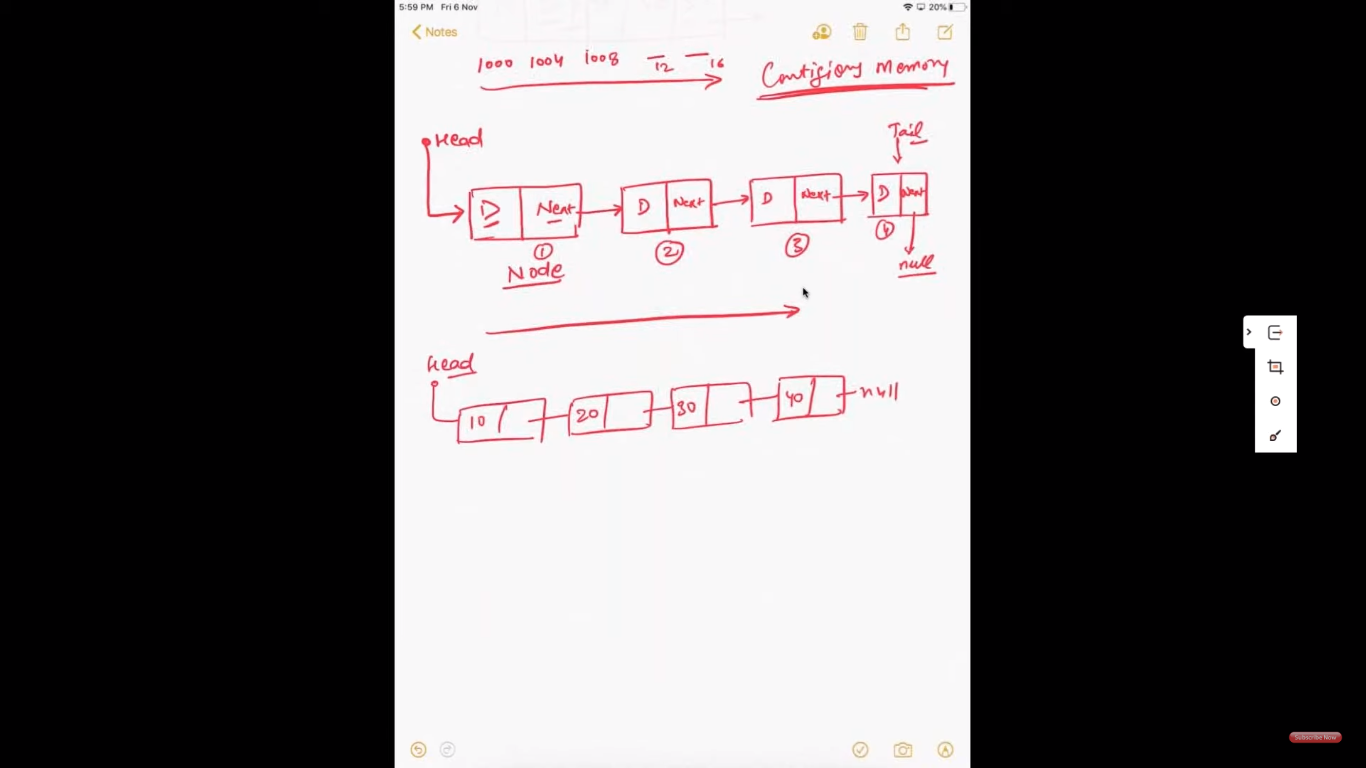 5:59 PM Fri 6 Nov
20%
Notes
1000 1004 1008 — 12 — 16
Contigious Memory
Head
Tail
D Next
D Next
D Next
D Next
1
2
3
4
Node
null
Head
10
20
30
40
null
Subscribe Now